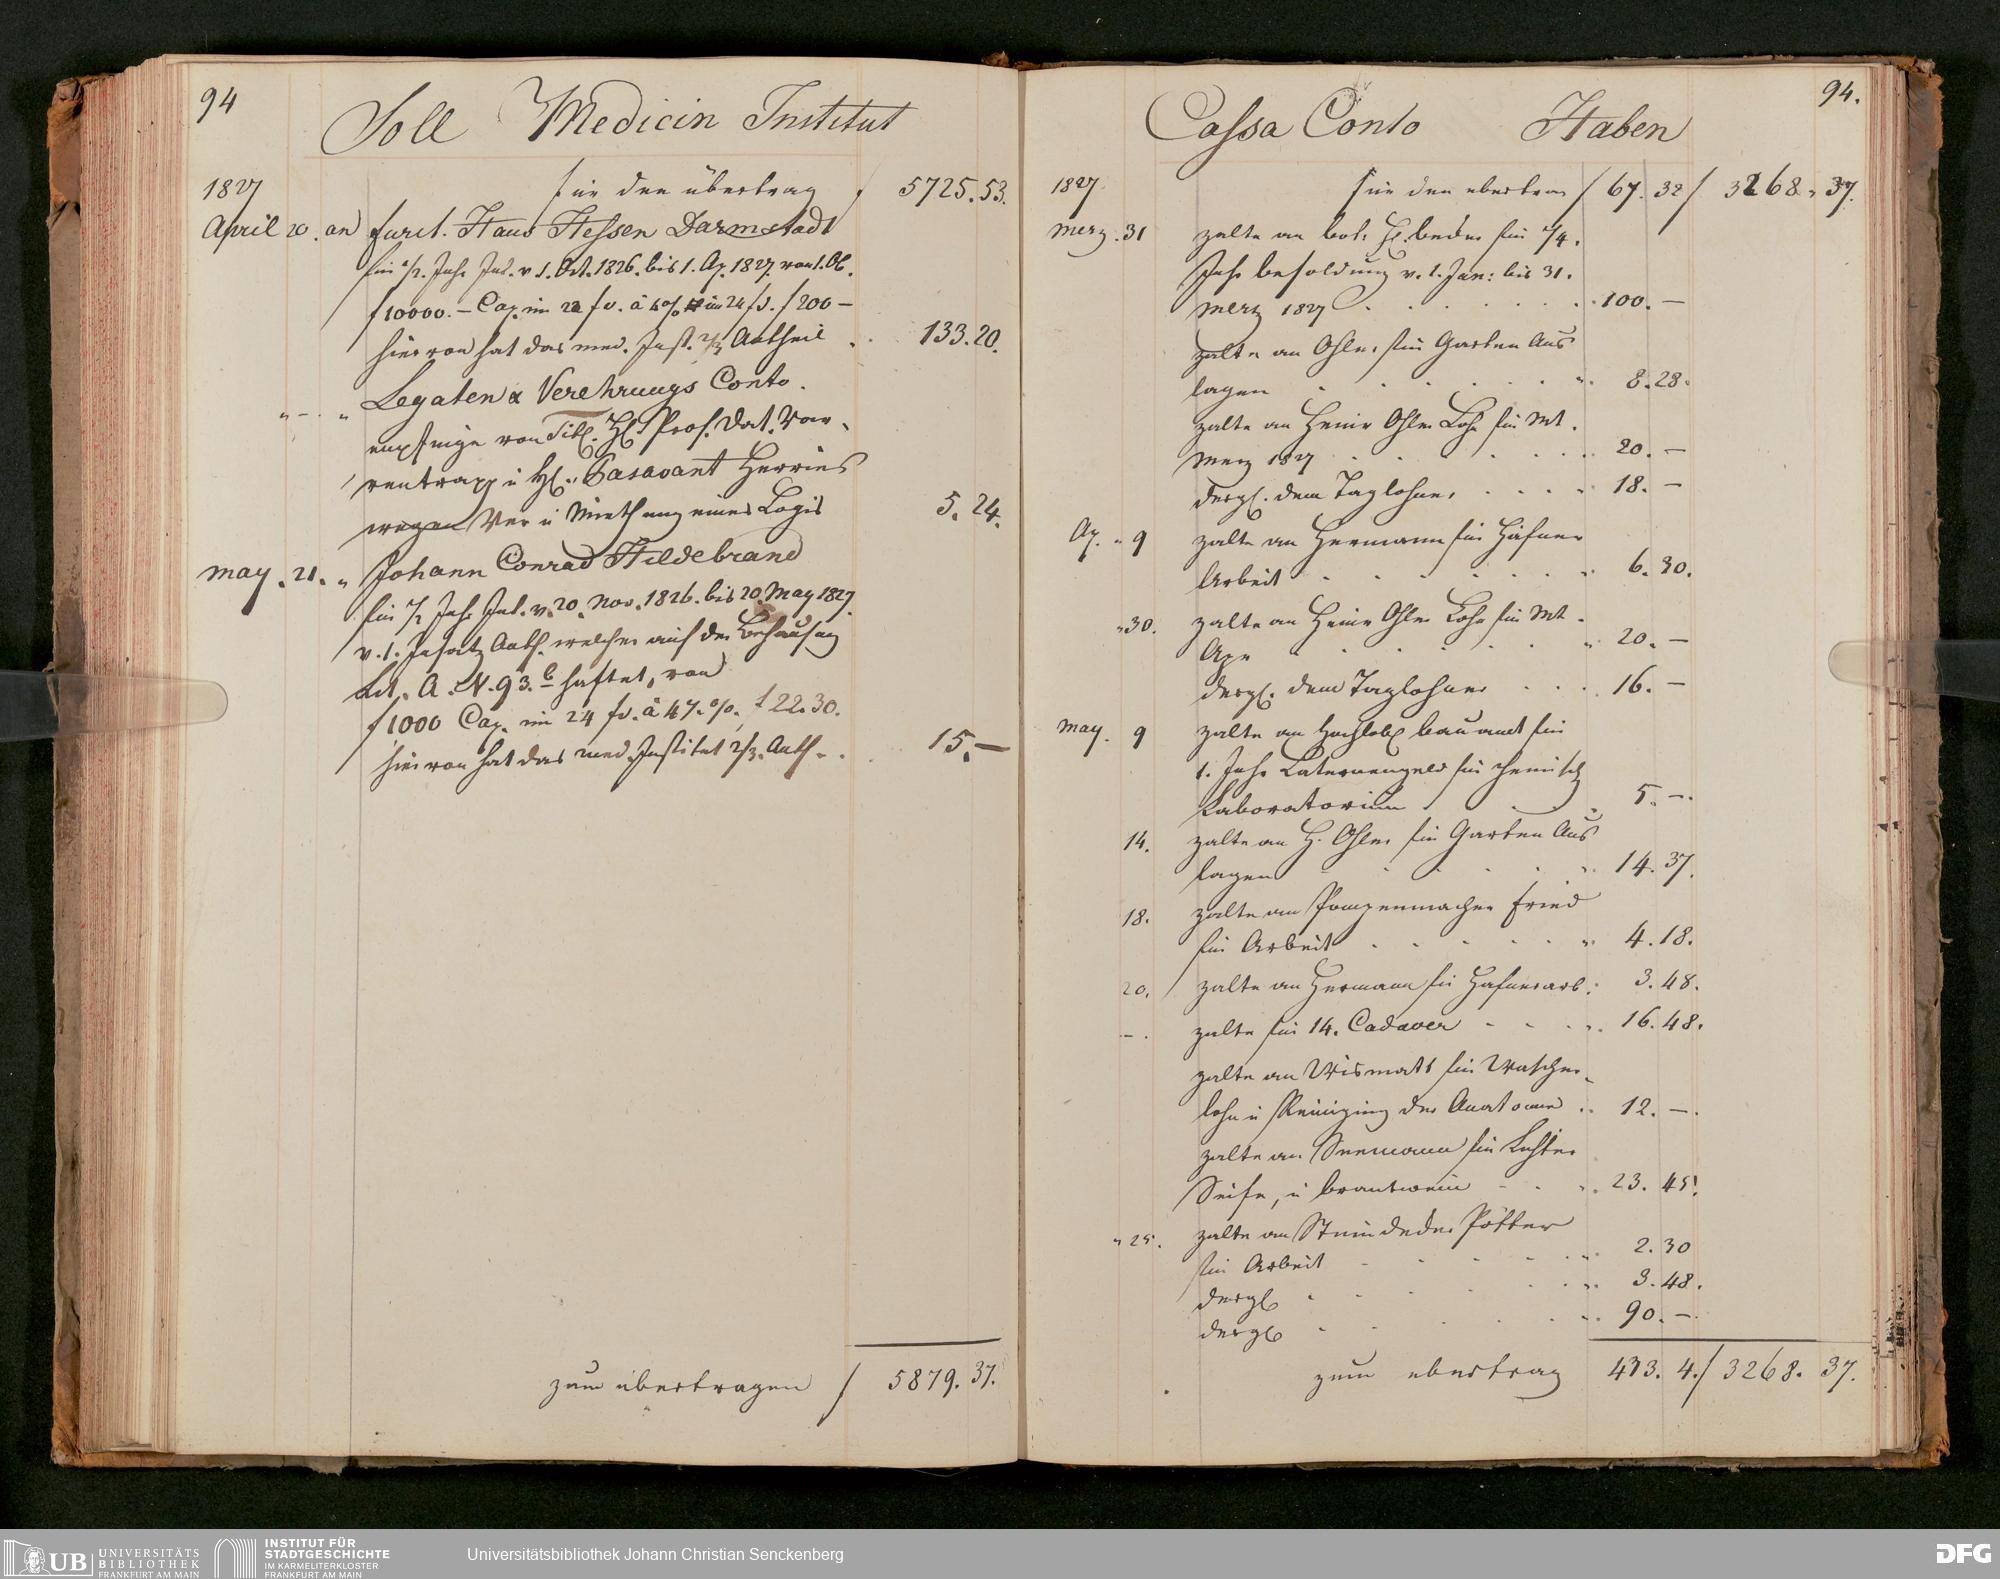 94
Soll Medicin Institut
1827 für den übertrag f 5725.53.
April 20. an furst. Haus Hessen Darmstadt
für ½ Jahr Int. v 1. Oct. 1826. bis 1. Ap. 1827. von 1. Ob.
f 10000.– Cap. im f 200 –
hiervon hat das med. Inst. 2/3 Antheil . . 133.20.
" – . " Legaten & Verehrungs Conto.
empfinge von Titl. H. Prof. Dat. Var-
rentrapp u H. Pasavant Herries
wegen Ver u Miethung eines Logis 5. 24.
may. 21. " Johann Conrad Hildebrand
für ½ Jahr Int. v. 20. Nov. 1826. bis 20. May 1827.
v. 1. Insatz Anth. welcher auf der Behausung
Lit. A. N. 93. b haftet, von
f 1000 Cap. im 24 fl. à 4½ %. f 22. 30.
hiervon hat das med. Institut 2/3. Anth – . . 15. –
zum übertragen f 5879. 37.
94.
Cassa Conto Haben
1827. für den ubertrag f 67. 32 f 3268. 37.
Merz. 31 zalte an bot. für ¼.
Jahr besoldung v. 1. Jan: bis 31.
Merz 1827 . . . . . 100. –
zalte an Ohler für Garten Aus
lagen . . . . . 8.28.
zalte an Heinr Ohler Lohn für Mt.
Merz 1827 . . . . . 20. –
dergl. dem Taglohner . . . . 18. –
Ap. " 9 zalte an Hermann für Häfner
Arbeit . . . . . 6. 30.
" 30. zalte an Heinr Ohler Lohn für Mt.
Apr . . . . . 20. –
dergl. dem Taglohner . . . 16. –
May. 9 zalte an Hochlobl bauamt für
1. Jahr Laternengeld für chemisch
Laboratorium . . . 5. –.
14. zalte an H. Ohler für Garten Aus
lagen . . . . . 14. 37.
18. zalte an Pompenmacher Fried
für Arbeit . . . . . 4. 18.
20. zalte an Hermann für Hafnerarb: 3. 48.
– . zalte für 14. Cadaver . . . . 16. 48.
zalte an Wismatt für Wascher-
lohn u Reinigung der Anatomie . . 12. –.
zalte an Seemann für Lichter
Seife, u brantwein . . . 23. 45.
" 25. zalte an Steindecker Pötter
für Arbeit . . . . . 2. 30
dergl . . . . . 3. 48.
dergl . . . . . 90. –.
zum ubertrag 473. 4. f 3268. 37.
UB UNIVERSITÄTS
BIBLIOTHEK
FRANKFURT AM MAIN
INSTITUT FÜR
STADTGESCHICHTE
IM KARMELITERKLOSTER
FRANKFURT AM MAIN
Universitätsbibliothek Johann Christian Senckenberg
DFG